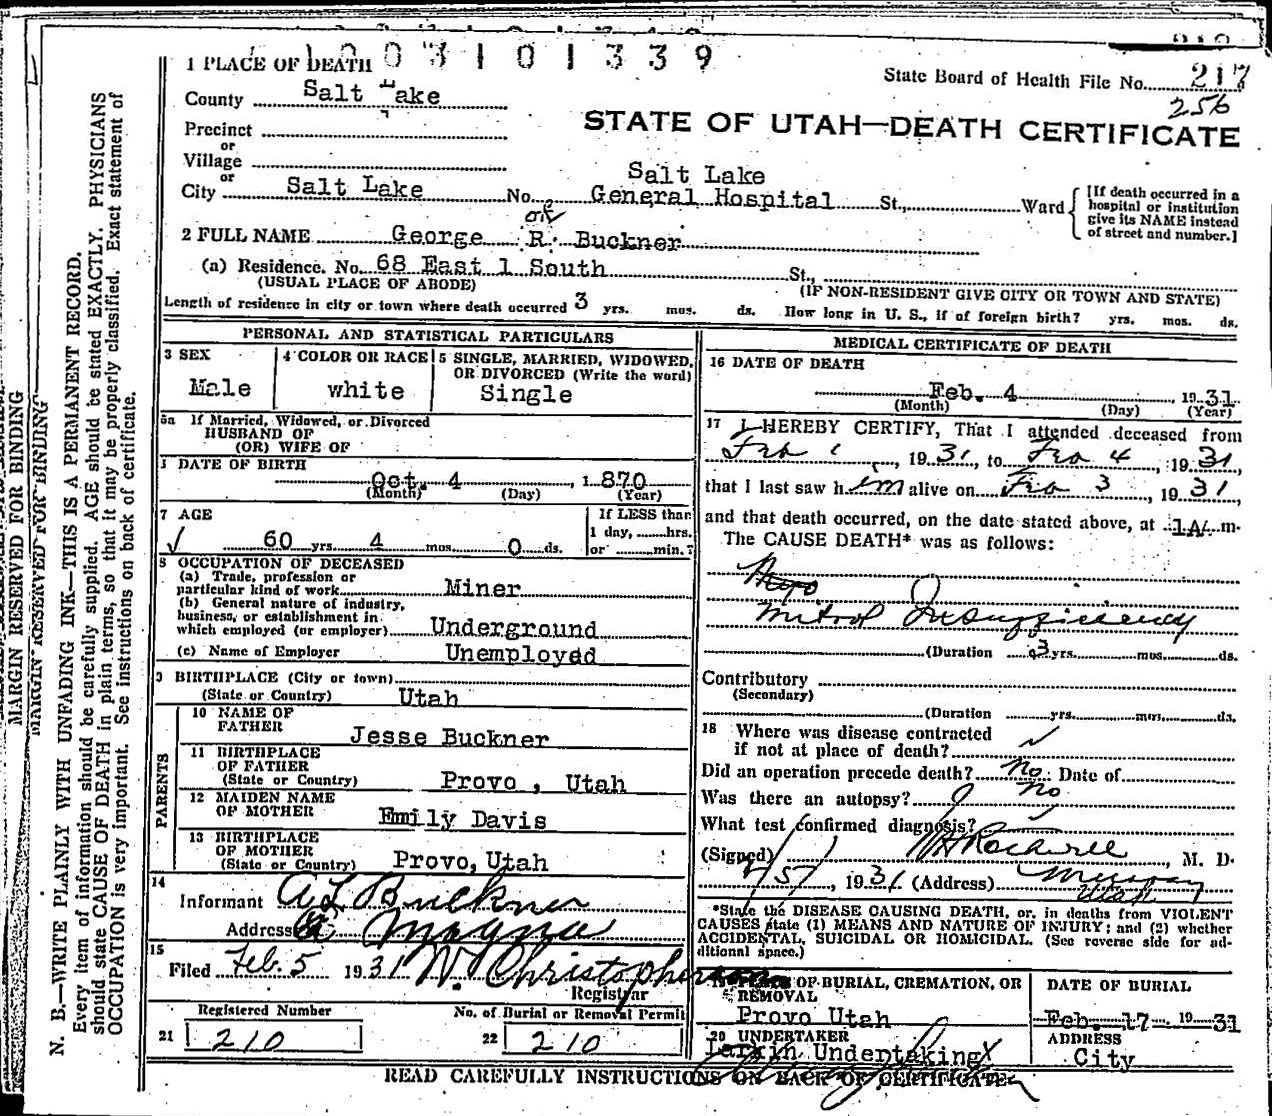 003101339
1 PLACE OF DEATH
State Board of Health File No. 217
256
County Salt Lake
STATE OF UTAH—DEATH CERTIFICATE
Precinct
or
Village
or
City Salt Lake No. Salt Lake General Hospital St., Ward
[If death occurred in a hospital or institution give its NAME instead of street and number.]
or
2 FULL NAME George R. Buckner
(a) Residence. No. 68 East 1 South St.,
(USUAL PLACE OF ABODE)
(IF NON-RESIDENT GIVE CITY OR TOWN AND STATE)
Length of residence in city or town where death occurred 3 yrs. mos. ds. How long in U. S., if of foreign birth? yrs. mos. ds.
PERSONAL AND STATISTICAL PARTICULARS
3 SEX
Male
4 COLOR OR RACE
white
5 SINGLE, MARRIED, WIDOWED,
OR DIVORCED (Write the word)
Single
5a If Married, Widowed, or Divorced
HUSBAND OF
(OR) WIFE OF
DATE OF BIRTH
Oct. 4, 1870
(Month) (Day) (Year)
7 AGE
60 yrs. 4 mos. 0 ds.
If LESS than
1 day, hrs.
or min.?
8 OCCUPATION OF DECEASED
(a) Trade, profession or
particular kind of work Miner
(b) General nature of industry,
business, or establishment in
which employed (or employer) Underground
(c) Name of Employer Unemployed
9 BIRTHPLACE (City or town)
(State or Country) Utah
PARENTS
10 NAME OF
FATHER Jesse Buckner
11 BIRTHPLACE
OF FATHER
(State or Country) Provo, Utah
12 MAIDEN NAME
OF MOTHER Emily Davis
13 BIRTHPLACE
OF MOTHER
(State or Country) Provo, Utah
14
Informant A L Buckner
Address Magna
15
Filed Feb. 5 1931 W. Christopherson
Registrar
Registered Number
21 210
No. of Burial or Removal Permit
22 210
MEDICAL CERTIFICATE OF DEATH
16 DATE OF DEATH
Feb. 4, 1931
(Month) (Day) (Year)
17 I HEREBY CERTIFY, That I attended deceased from
Feb 1, 1931, to Feb 4, 1931,
that I last saw him alive on Feb 3, 1931,
and that death occurred, on the date stated above, at 1A m.
The CAUSE DEATH* was as follows:
Mitral Insufficiency
(Duration 3 yrs. mos. ds.
Contributory
(Secondary)
(Duration yrs. mos. ds.
18 Where was disease contracted
if not at place of death?
Did an operation precede death? No Date of
Was there an autopsy? No
What test confirmed diagnosis?
(Signed) Rockwell, M. D.
2/5, 1931 (Address) Murray
Utah
*State the DISEASE CAUSING DEATH, or, in deaths from VIOLENT
CAUSES state (1) MEANS AND NATURE OF INJURY; and (2) whether
ACCIDENTAL, SUICIDAL OR HOMICIDAL. (See reverse side for ad-
ditional space.)
19 PLACE OF BURIAL, CREMATION, OR
REMOVAL
Provo Utah
DATE OF BURIAL
Feb. 17 1931
20 UNDERTAKER
Larkin Undertaking
ADDRESS
City
READ CAREFULLY INSTRUCTIONS ON BACK OF CERTIFICATE
MARGIN RESERVED FOR BINDING
MARGIN RESERVED FOR BINDING
N. B.—WRITE PLAINLY WITH UNFADING INK—THIS IS A PERMANENT RECORD.
Every item of information should be carefully supplied. AGE should be stated EXACTLY. PHYSICIANS
should state CAUSE OF DEATH in plain terms, so that it may be properly classified. Exact statement of
OCCUPATION is very important. See instructions on back of certificate.